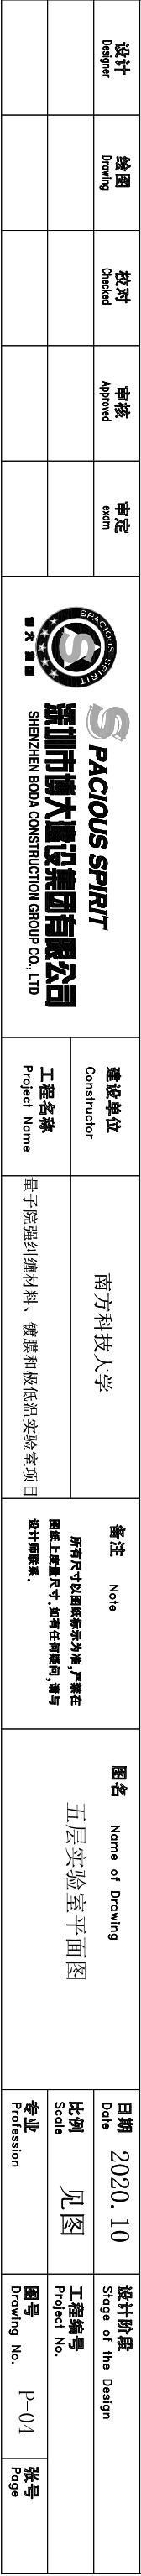 设计
Designer
绘图
Drawing
校对
Checked
审核
Approved
审定
exam
SPACIOUS SPIRIT
S
博大建设
SPACIOUS SPIRIT
深圳市博大建设集团有限公司
SHENZHEN BODA CONSTRUCTION GROUP CO., LTD
建设单位
Constructor
南方科技大学
工程名称
Project Name
量子院强纠缠材料、镀膜和极低温实验室项目
备注 Note
所有尺寸以图纸标示为准,严禁在
图纸上度量尺寸.如有任何疑问,请与
设计师联系.
图名 Name of Drawing
五层实验室平面图
日期
Date
2020.10
设计阶段
Stage of the Design
比例
Scale
见图
工程编号
Project No.
专业
Profession
图号
Drawing No.
P-04
张号
Page